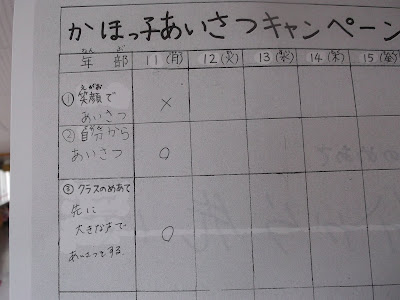 かほっ子あいさつキャンペーン
ねん ぶ
年 部 11(月) 12(火) 13(水) 14(木) 15(金)
えがお
①笑顔で
あいさつ ×
じぶん
②自分から
あいさつ ○
③クラスのめあて
先に
大きな声で
あいさつをする ○